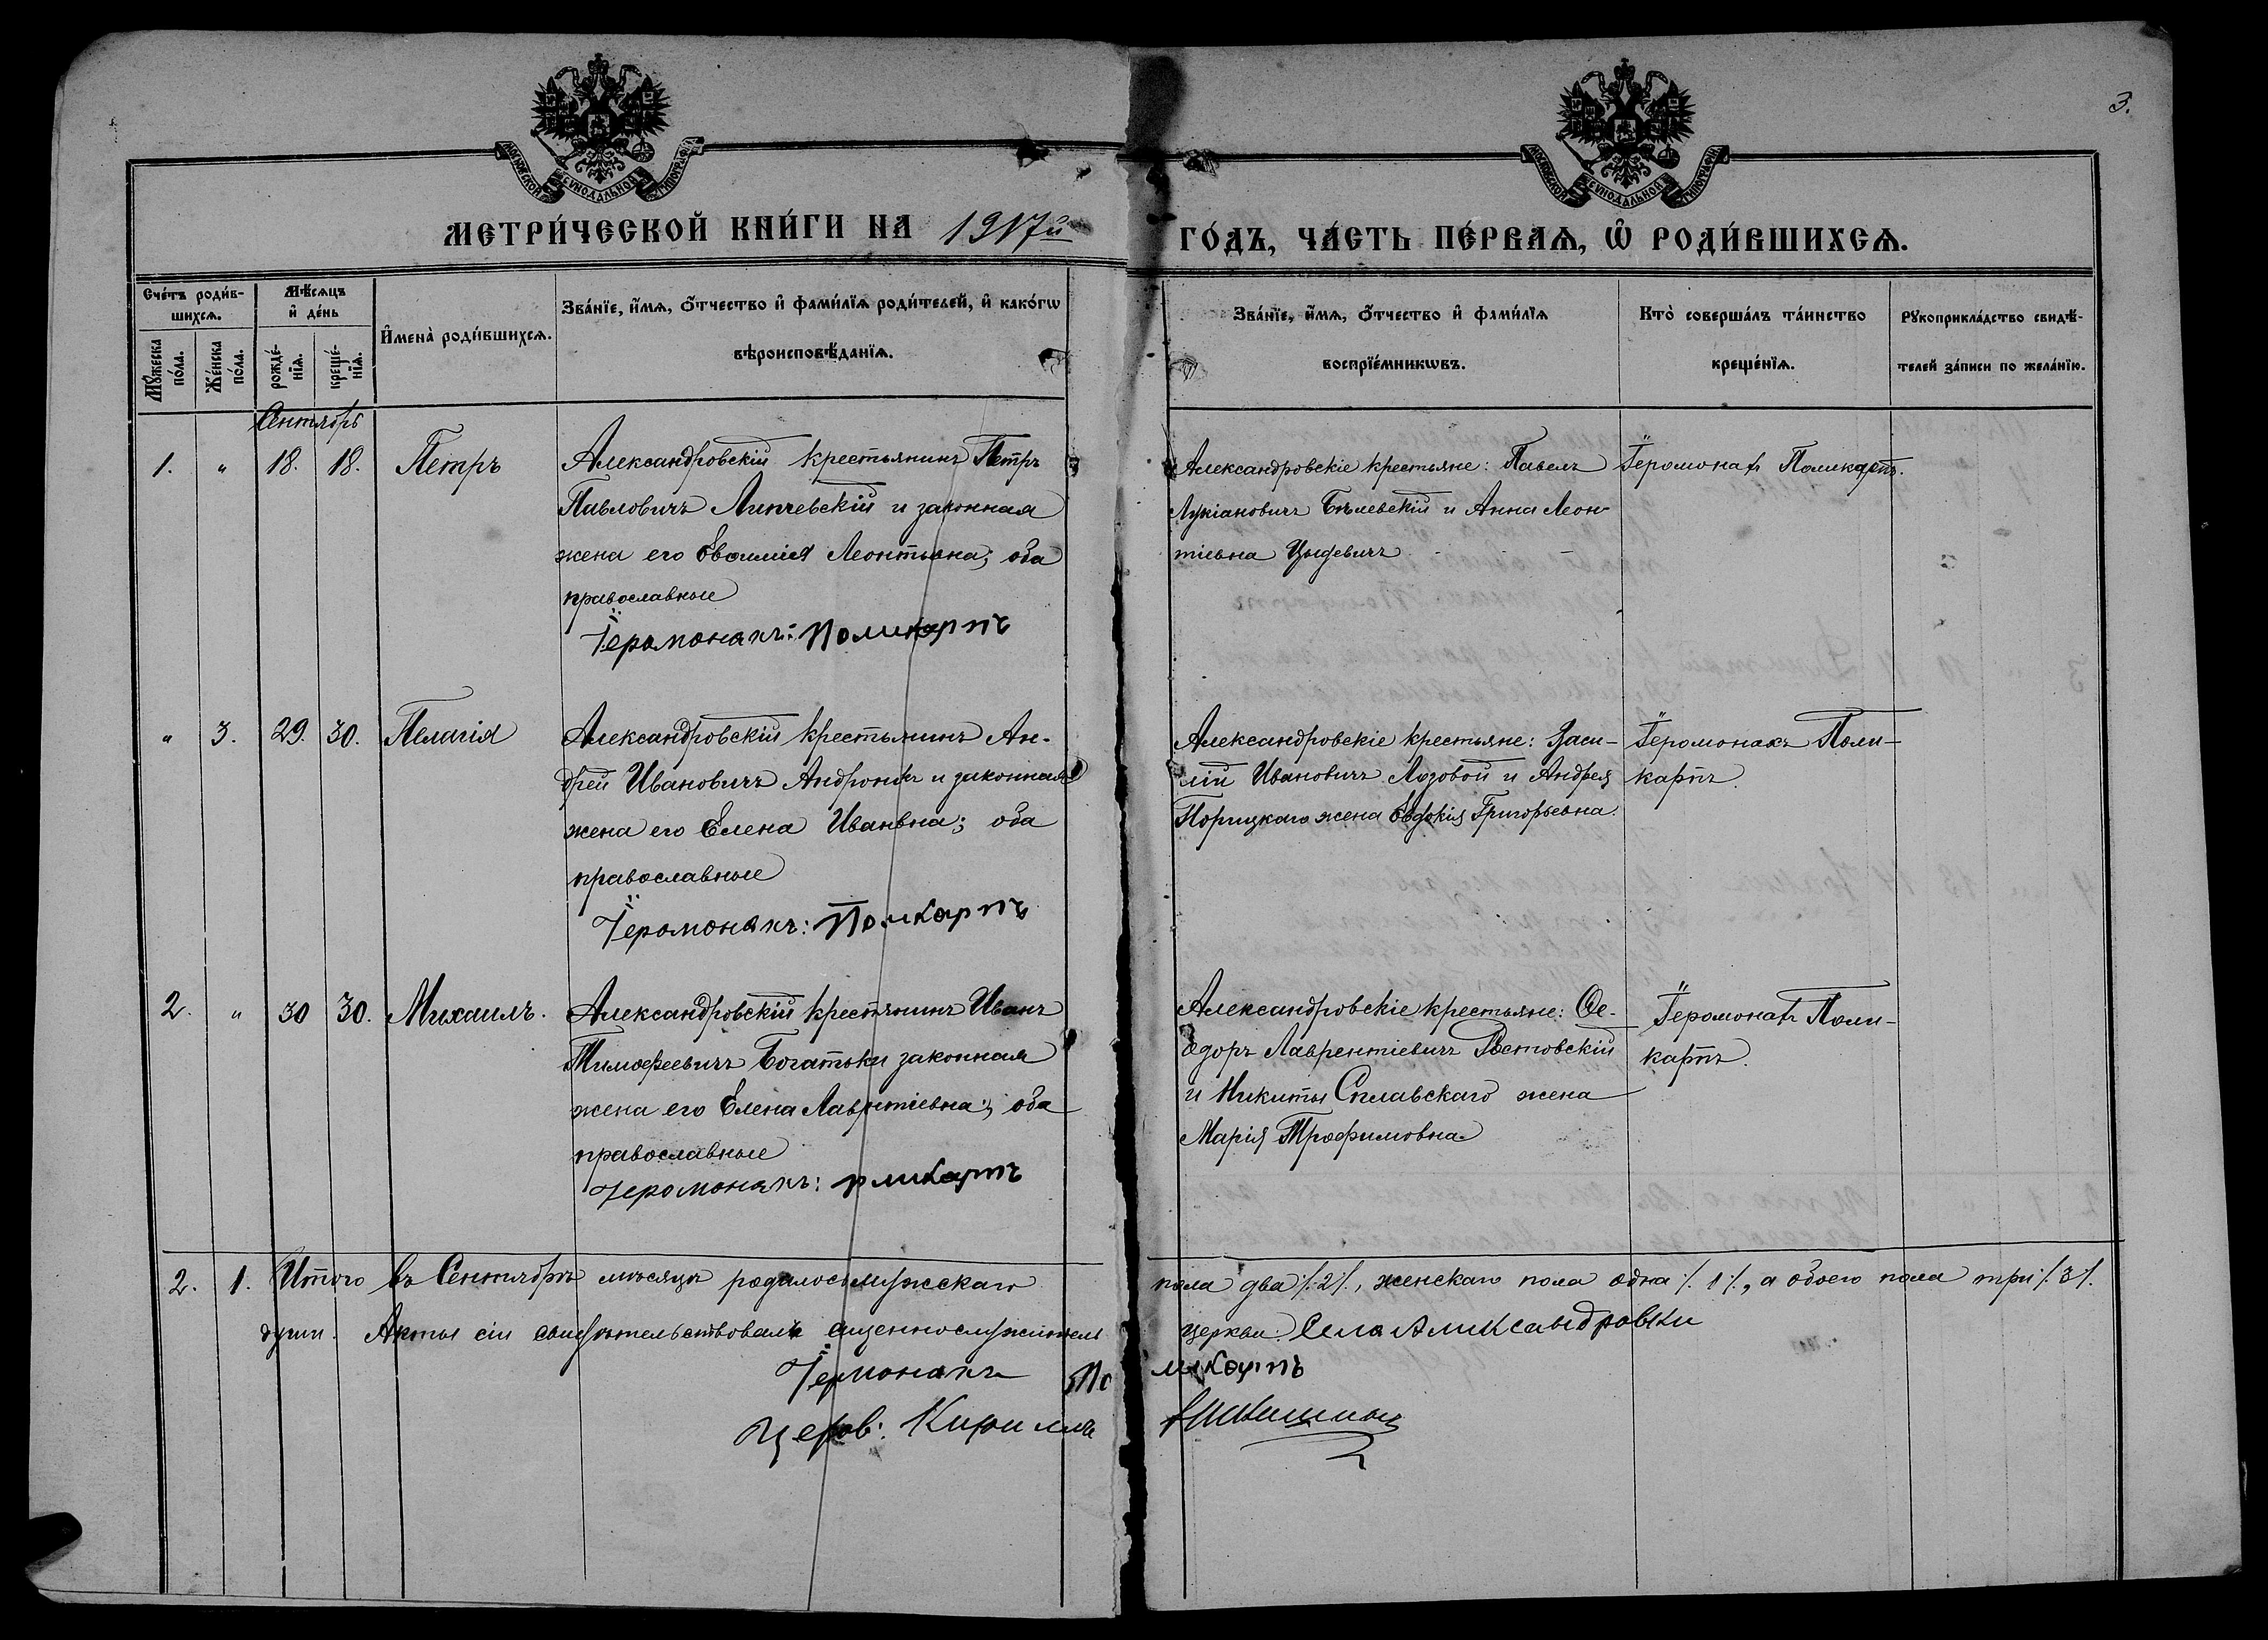 3.
МОСКОВСКОЙ СѴНОДАЛЬНОЙ ТИПОГРАФІИ
МОСКОВСКОЙ СѴНОДАЛЬНОЙ ТИПОГРАФІИ
МЕТРИ́ЧЕСКОЙ КНИ́ГИ НА 1917й ГО́ДЪ, ЧА́СТЬ ПЕ́РВАѦ, Ѡ҆ РОДИ́ВШИХСѦ.
Сче́тъ роди́в-
шихсѧ.
Мꙋ́жеска по́ла.
Же́нска по́ла.
Мѣ́сѧцъ
и҆ де́нь
рожде́-
нїѧ.
креще́-
нїѧ.
И҆мена̀ роди́вшихсѧ.
Зва́нїе, и҆́мѧ, ѻ҆́тчество и҆ фами́лїѧ роди́телей, и҆ како́гѡ
вѣроисповѣ́данїѧ.
Зва́нїе, и҆́мѧ, ѻ҆́тчество и҆ фами́лїѧ
воспрїе́мникѡвъ.
Кто̀ соверша́лъ та́инство
креще́нїѧ.
Рꙋкоприкла́дство свидѣ́-
телей за́писи по жела́нїю.
Сентябрь
1. " 18. 18. Петръ
Александровскій крестьянинъ Петръ
Павловичъ Липчевскій и законная
жена его Евфимія Леонтьевна; оба
православные
Іеромонахъ: Поликарпъ
Александровскіе крестьяне: Павелъ
Лукіановичъ Бѣлевскій и Анна Леон-
тіевна
Іеромонахъ Поликарпъ.
" 3. 29. 30. Пелагія
Александровскій крестьянинъ Ан-
дрей Ивановичъ и законная
жена его Елена Иванвна; оба
православные
Іеромонахъ: Поликарпъ
Александровскіе крестьяне: Васи-
лій Ивановичъ Лозовой и Андрея
Порицкаго жена Евдокія Григорьевна.
Іеромонахъ Поли-
карпъ.
2. " 30 30. Михаилъ.
Александровскій крестьянинъ Иванъ
Тимофеевичъ законная
жена его Елена Лаврнтіевна; оба
православные
Іеромонахъ: Пликарпъ
Александровскіе крестьяне: Фе-
одоръ Лаврентіевичъ Ростовскій
и Никиты Сплавскаго жена
Марія Трофимовна.
Іеромонахъ Поли-
карпъ.
2. 1. Итого въ Сентябрѣ мѣсяцѣ родилось мужскаго пола два ⁒ 2 ⁒, женскаго пола одна ⁒ 1 ⁒, а обоего пола три ⁒ 3 ⁒
души. Акты сіи свидѣтельствовалъ священнослужитель церкви Села Александровки
Іермонахъ Поликарпъ
Церов: Кирилъ